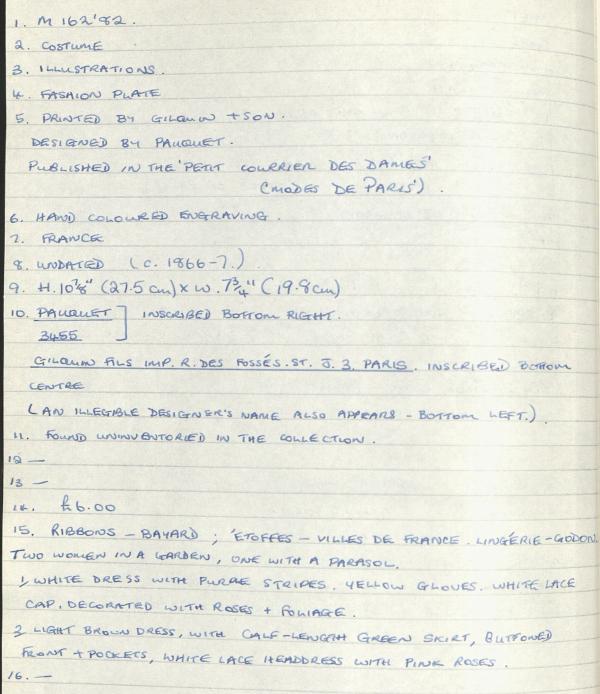 1. M 162'82.
2. COSTUME
3. ILLUSTRATIONS.
4. FASHION PLATE
5. PRINTED BY GILQUIN + SON.
DESIGNED BY PAUQUET.
PUBLISHED IN THE 'PETIT COURRIER DES DAMES'
(MODES DE PARIS').
6. HAND COLOURED ENGRAVING.
7. FRANCE
8. UNDATED (c. 1866-7.)
9. H. 10⅞" (27.5 cm) x W. 7¾" (19.8cm)
10. PAUQUET ] INSCRIBED BOTTOM RIGHT.
3455
GILQUIN FILS IMP. R. DES FOSSÉS. ST. J. 3. PARIS. INSCRIBED BOTTOM
CENTRE
(AN ILLEGIBLE DESIGNER'S NAME ALSO APPEARS - BOTTOM LEFT.)
11. FOUND UNINVENTORIED IN THE COLLECTION.
12 —
13 —
14. £6.00
15. RIBBONS - BAYARD ; 'ETOFFES - VILLES DE FRANCE. LINGÉRIE - GODON.
TWO WOMEN IN A GARDEN, ONE WITH A PARASOL.
1, WHITE DRESS WITH PURPLE STRIPES. YELLOW GLOVES. WHITE LACE
CAP, DECORATED WITH ROSES + FOLIAGE.
2 LIGHT BROWN DRESS, WITH CALF-LENGTH GREEN SKIRT, BUTTONED
FRONT + POCKETS, WHITE LACE HEADDRESS WITH PINK ROSES.
16. —